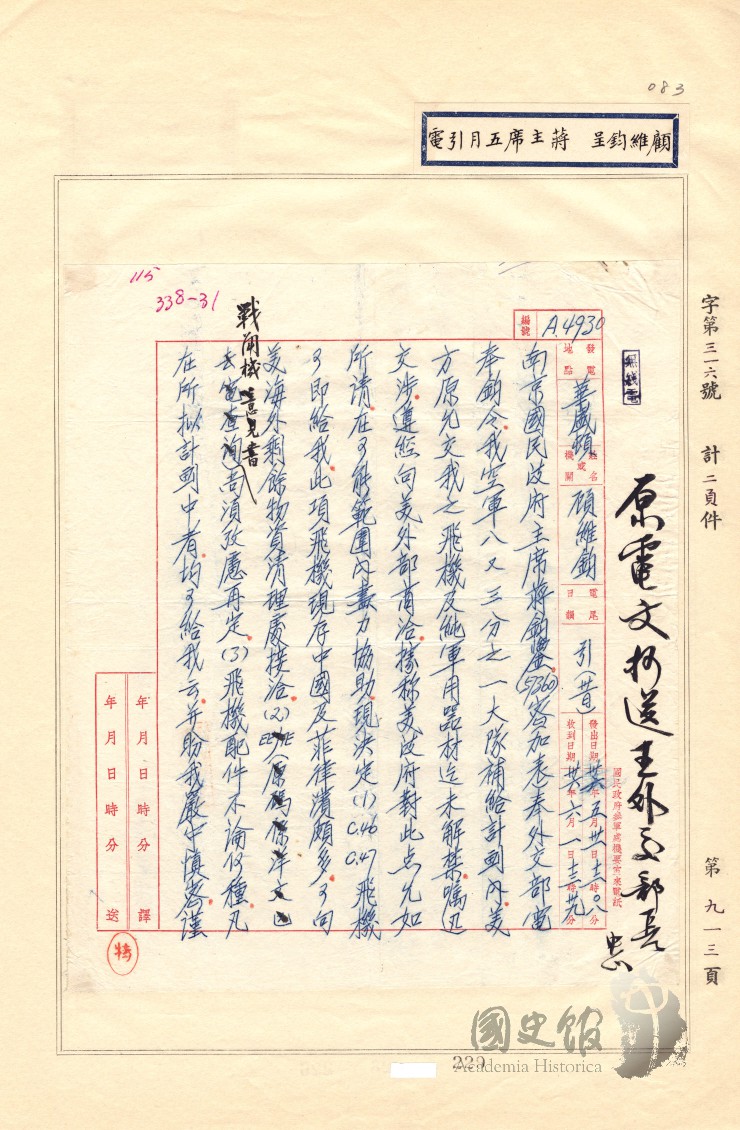 083
顧維鈞呈 蔣主席五月引電
字第三一六號 計二頁件
第九一三頁
原電文抄送王外交部長
無線電
國民政府參軍處機要室來電紙
編號 A.4930
發電地點 華盛頓
姓名或機關 顧維鈞
電尾日韻 引
發出日期 卅六年五月卅日十六時〇八分
收到日期 卅六年六月一日十三時廿九分
115
338-31
南京國民政府主席蔣鈞鑒(5360)密加表奉外交部電
奉鈞令我空軍八又三分之一大隊補給計劃內美
方原允交我之飛機及純軍用器材迄未解禁囑迅
交涉遵經向美外部商洽據稱美政府對此点允如
所請在可能範圍內盡力協助現決定(1)C.46 C.47飛機
可即給我此項飛機現存中國及菲律濱頗多可向
美海外剩餘物資清理處接洽(2)
戰鬥機
意見書
尚須攷慮再定(3)飛機配件不論何種凡
在所拟計劃中者均可給我云并盼我嚴守慎密謹
年月日時分譯
年月日時分送
特
國史館
Academia Historica
229